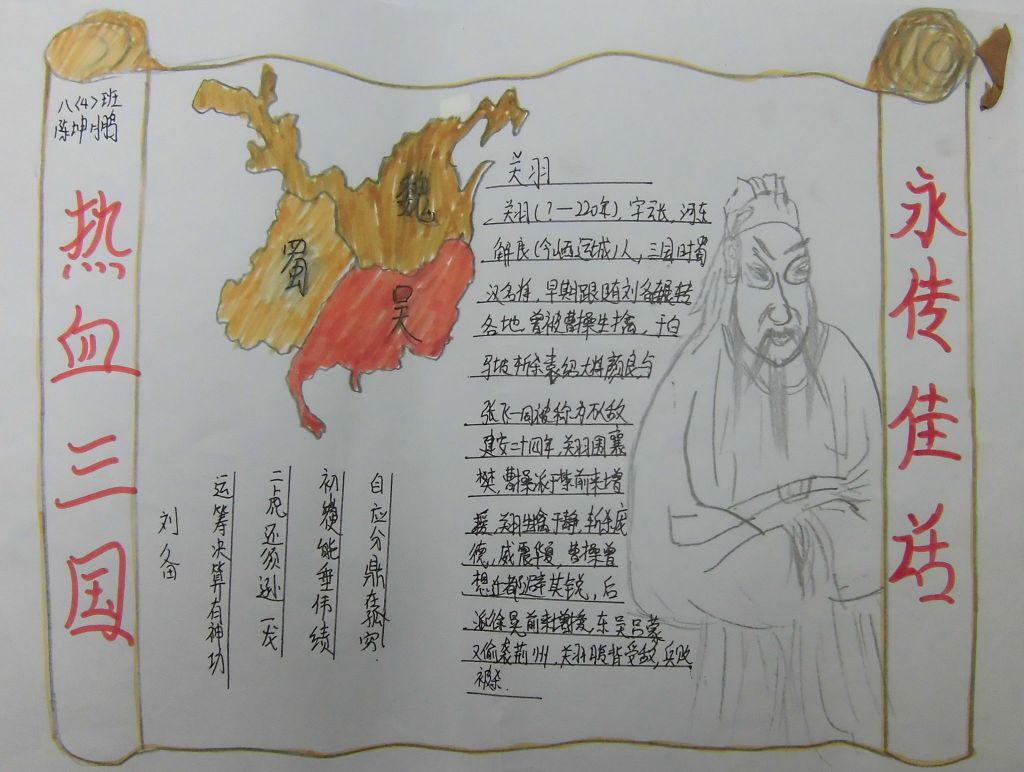 八〈4〉班
陈坤鹏
热血三国
永传佳话
魏
蜀
吴
关羽
关羽(？—220年),字云长,河东
解良(今山西运城)人,三国时蜀
汉名将,早期跟随刘备辗转
各地,曾被曹操生擒,于白
马坡斩杀袁绍大将颜良与
张飞一同被称为万人敌
建安二十四年,关羽围襄
樊,曹操派于禁前来增
援,关羽生擒于静,斩杀庞
德,威震华夏,曹操曾
想迁都避其锐,后
派徐晃前来增援,东吴吕蒙
又偷袭荆州,关羽腹背受敌,兵败
被杀.
运筹决算有神功
二虎还须逊一龙
初出能垂伟绩
自应分鼎在孤穷.
刘备